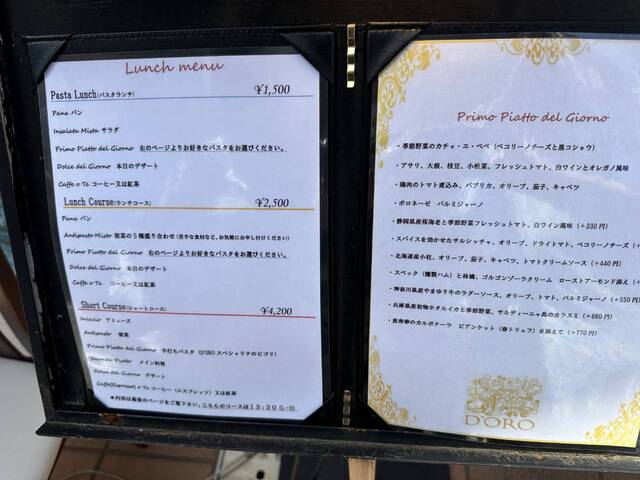 Lunch menu
Pasta Lunch(パスタランチ) ¥1,500
Pane パン
Insalata Mista サラダ
Primo Piatto del Giorno 右のページよりお好きなパスタをお選びください。
Dolce del Giorno 本日のデザート
Caffe o Te コーヒー又は紅茶
Lunch Course(ランチコース) ¥2,500
Pane パン
Antipasto Misto 前菜の5種盛り合わせ(苦手な食材など、お気軽にお申し付けください)
Primo Piatto del Giorno 右のページよりお好きなパスタをお選びください。
Dolce del Giorno 本日のデザート
Caffe o Te コーヒー又は紅茶
Short Course(ショートコース) ¥4,200
Inizio アミューズ
Antipasto 前菜
Primo Piatto del Giorno 手打ちパスタ (D'OROスペシャリテのピゴリ)
Secondo Piatto メイン料理
Dolce del Giorno デザート
Caffe(Espresso) o Te コーヒー(エスプレッソ)又は紅茶
*内容は最後のページをご覧下さい。こちらのコースは13:30(L・O)
Primo Piatto del Giorno
・季節野菜のカチョ・エ・ペペ(ペコリーノチーズと黒コショウ)
・アサリ、大根、枝豆、小松菜、フレッシュトマト、白ワインとオレガノ風味
・鶏肉のトマト煮込み、パプリカ、オリーブ、茄子、キャベツ
・ボロネーゼ パルミジャーノ
・静岡県産桜海老と季節野菜フレッシュトマト、白ワイン風味(+330円)
・スパイスを効かせたサルシッチャ、オリーブ、ドライトマト、ペコリーノチーズ(+
・北海道産小柱、オリーブ、茄子、キャベツ、トマトクリームソース(+440円)
・スペック(燻製ハム)と林檎、ゴルゴンゾーラクリーム ローストアーモンド添え(
・神奈川県産やまゆり牛のラグーソース、オリーブ、トマト、パルミジャーノ(+550円)
・兵庫県産初物ホタルイカと季節野菜、サルディーニャ島のカラスミ(+660円)
・恵寿卵のカルボナーラ ビアンケット(春トリュフ)を添えて(+770円)
D'ORO